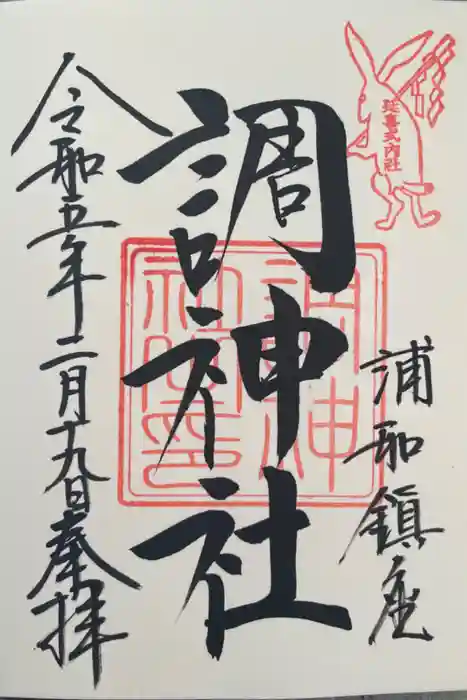 延喜式内社
浦和鎮座
調神社
調神社印
令和五年二月十九日奉拝